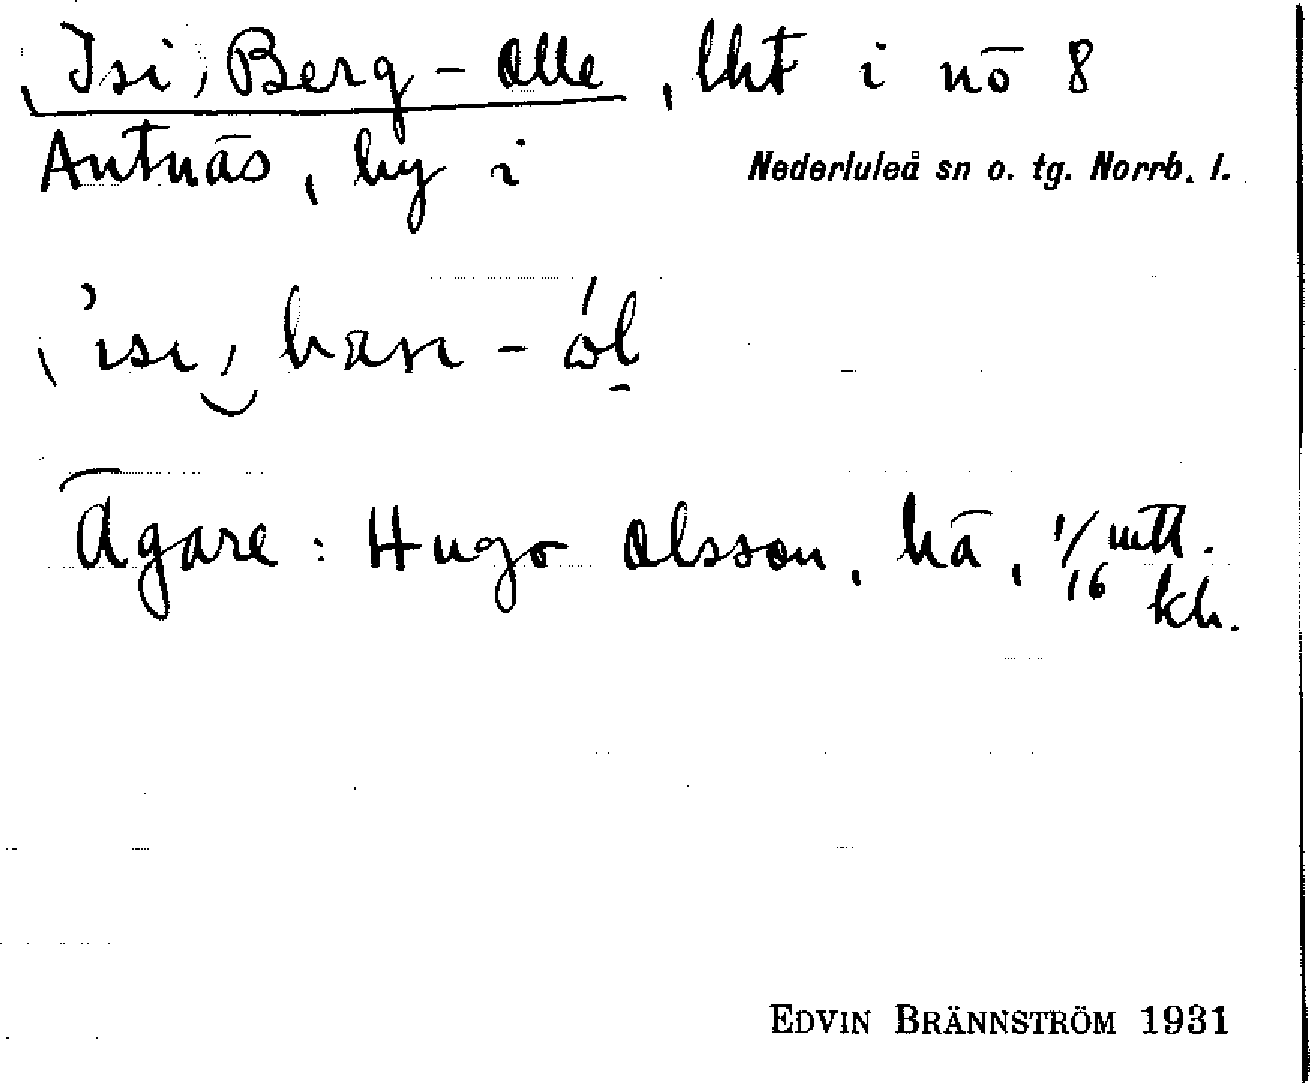 (Isi) Berg-Olle, lht i nō 8
Antnäs, by i Nederluleå sn o. tg. Norrb. l.
Ägare: Hugo Olsson, hä, 1/16 mtl.
kh.
EDVIN BRÄNNSTRÖM 1931